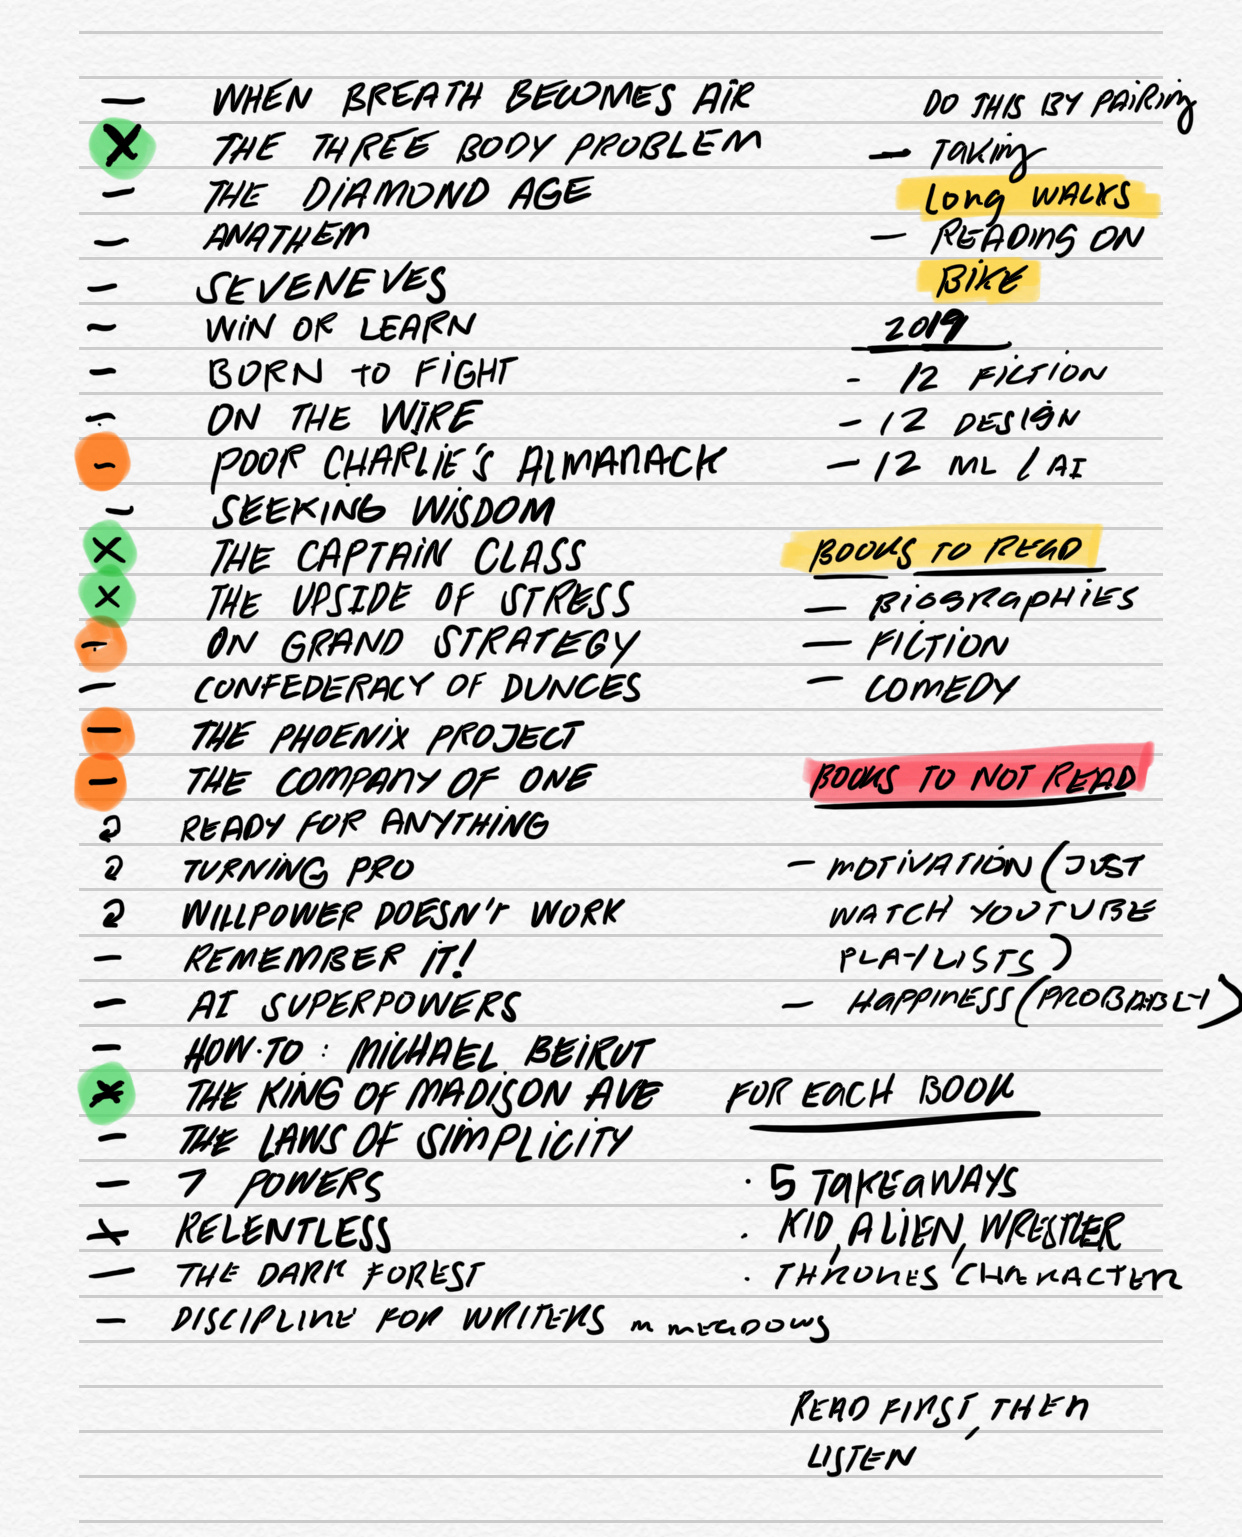 — WHEN BREATH BECOMES AIR
X THE THREE BODY PROBLEM
- THE DIAMOND AGE
- ANATHEM
- SEVENEVES
- WIN OR LEARN
- BORN TO FIGHT
- ON THE WIRE
- POOR CHARLIE'S ALMANACK
- SEEKING WISDOM
X THE CAPTAIN CLASS
X THE UPSIDE OF STRESS
- ON GRAND STRATEGY
- CONFEDERACY OF DUNCES
- THE PHOENIX PROJECT
- THE COMPANY OF ONE
READY FOR ANYTHING
TURNING PRO
WILLPOWER DOESN'T WORK
- REMEMBER IT!
- AI SUPERPOWERS
- HOW·TO : MICHAEL BEIRUT
X THE KING OF MADISON AVE
- THE LAWS OF SIMPLICITY
- 7 POWERS
X RELENTLESS
- THE DARK FOREST
- DISCIPLINE FOR WRITERS M MEADOWS
DO THIS BY PAIRING
- TAKING
LONG WALKS
- READING ON
BIKE
2019
- 12 FICTION
- 12 DESIGN
- 12 ML / AI
BOOKS TO READ
- BIOGRAPHIES
- FICTION
- COMEDY
BOOKS TO NOT READ
- MOTIVATION (JUST
WATCH YOUTUBE
PLAYLISTS)
- HAPPINESS (PROBABLY)
FOR EACH BOOK
· 5 TAKEAWAYS
· KID, ALIEN, WRESTLER
· THRONES CHARACTER
READ FIRST, THEN
LISTEN